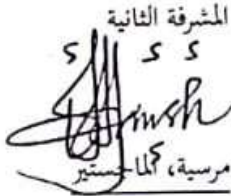 المشرفة الثانية
مرسية، الماجستير